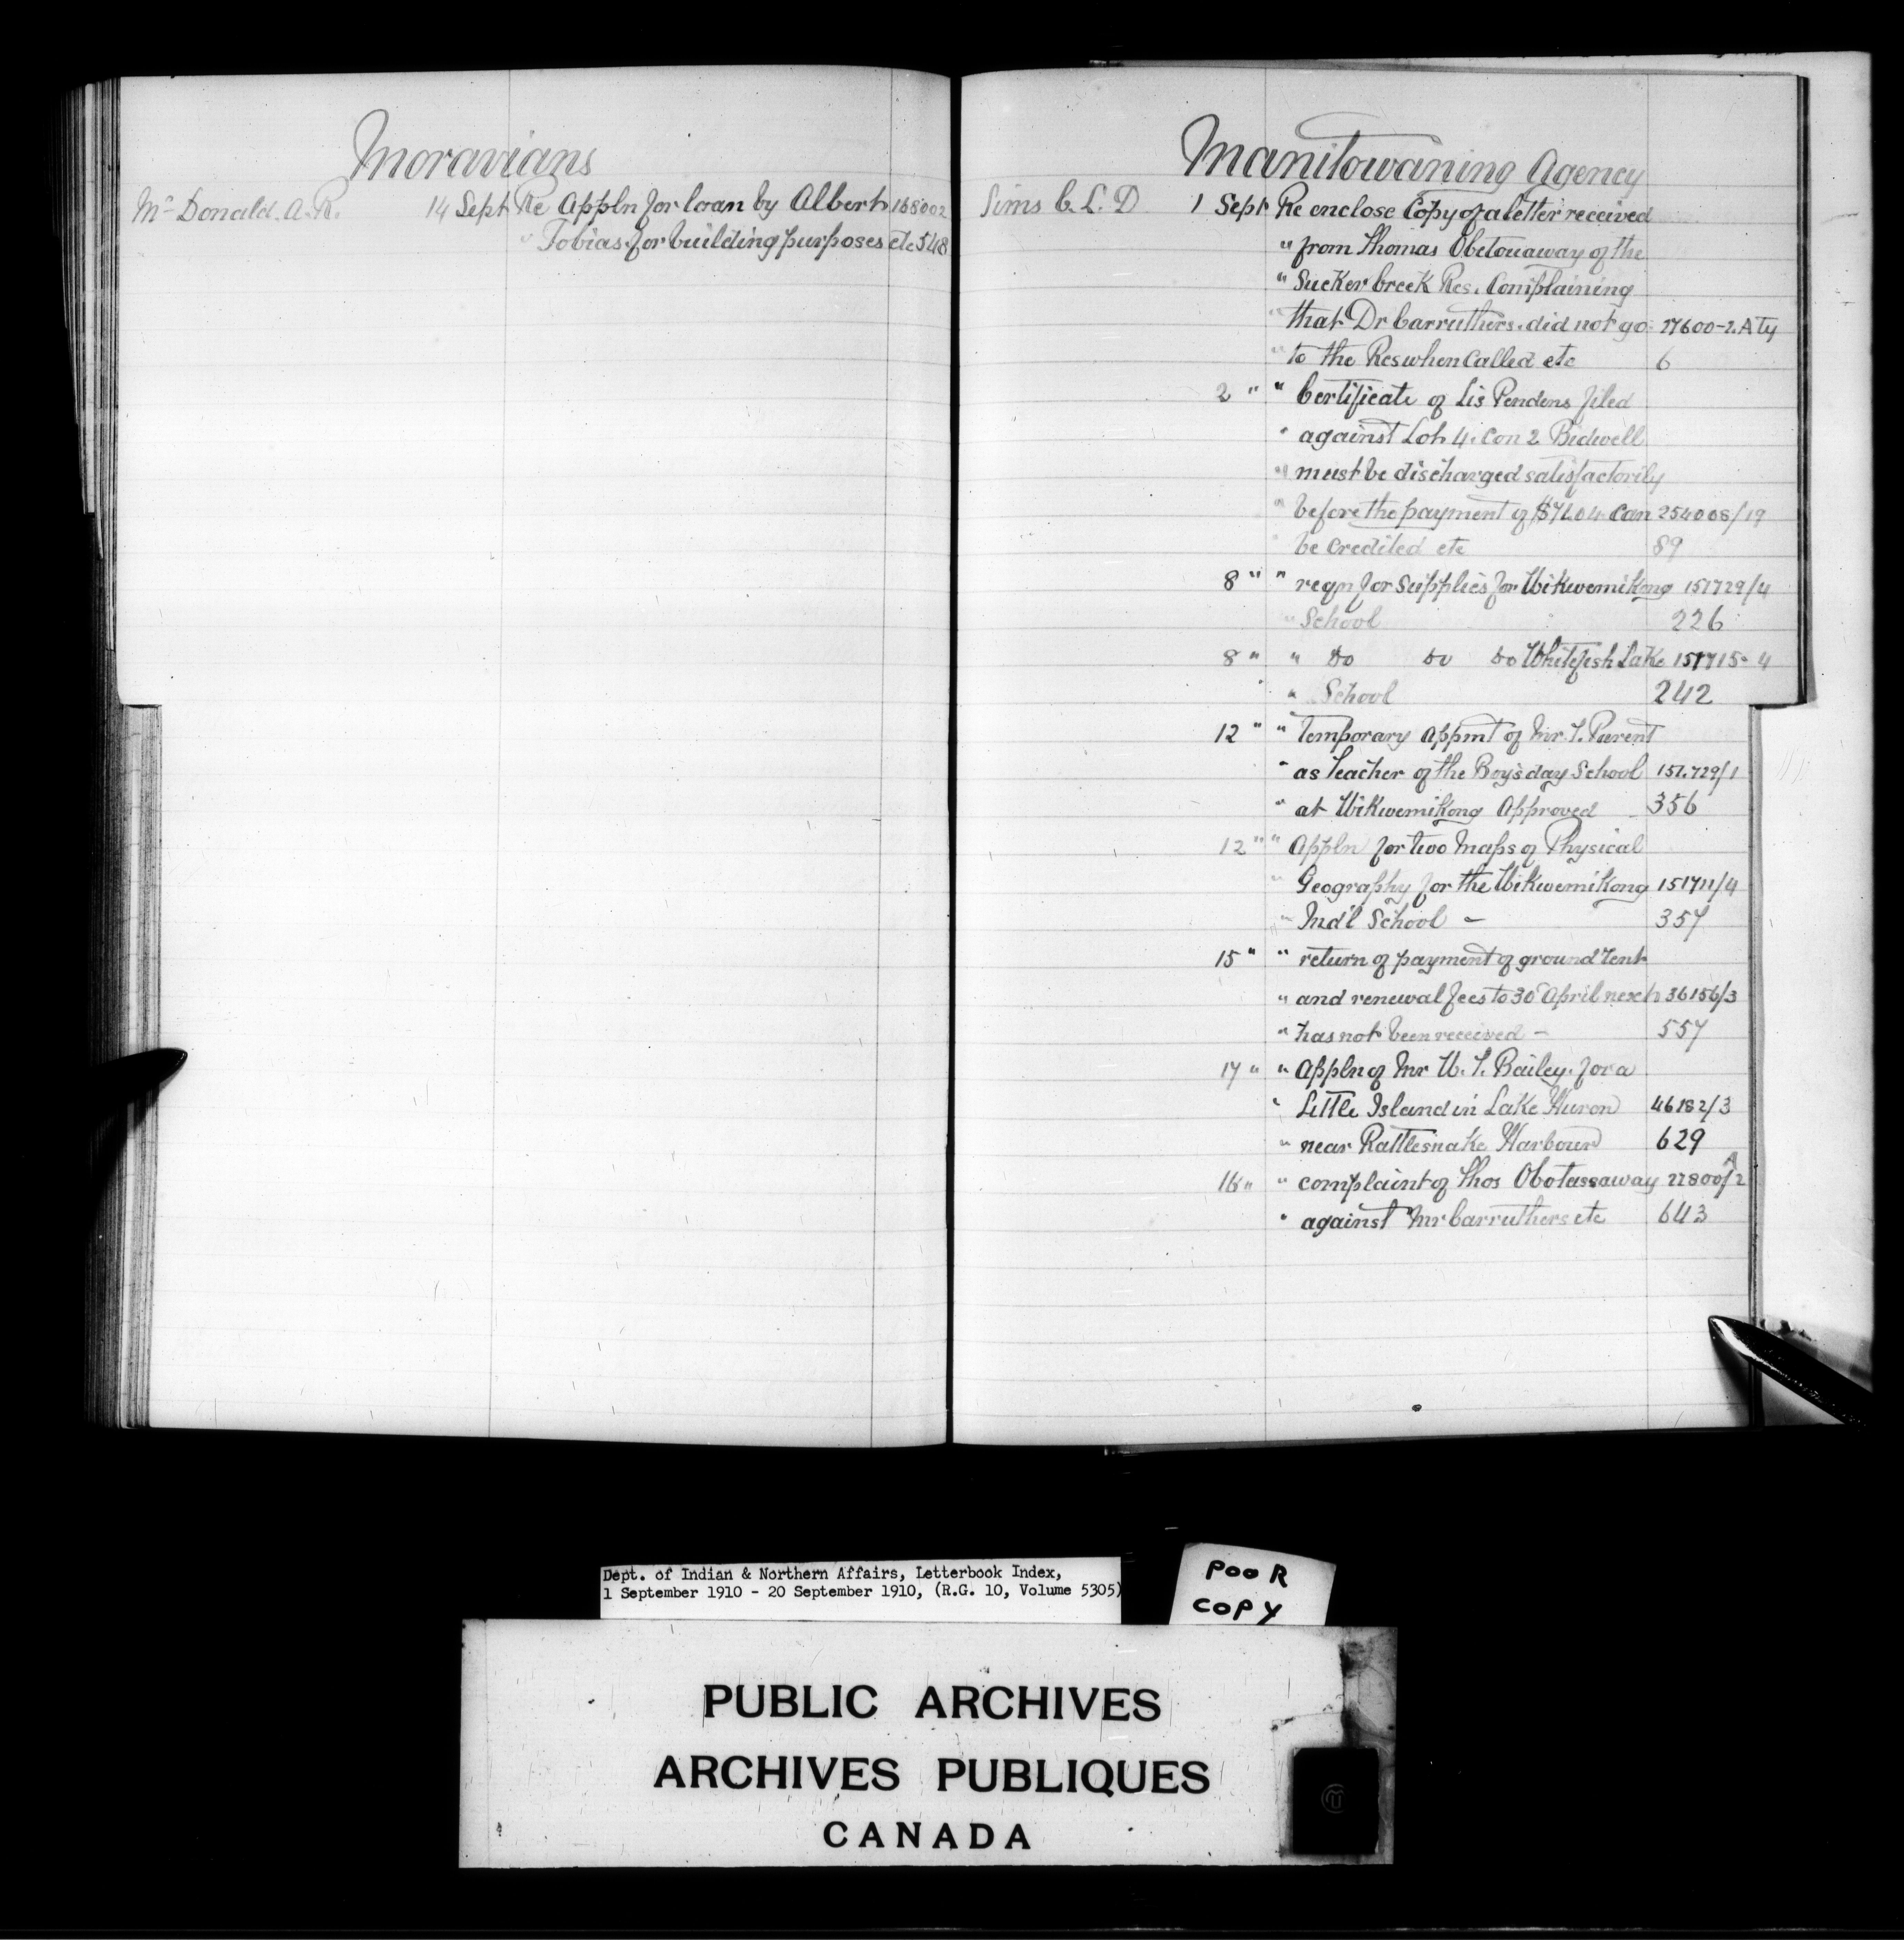 Moravians
Mc Donald. A. R. 14 Sept Re Appln for loan by Albert 168002
" Tobias for building purposes etc 548
Manitowaning Agency
Sims C. L. D 1 Sept Re enclose Copy of a letter received
" from Thomas Obetouaway of the
" Sucker Creek Res. Complaining
" that Dr Carruthers did not go 27600-2. A Ty
" to the Res when Called etc 6
2 " " Certificate of Lis Pendens filed
" against Lot 4. Con 2 Bidwell
" must be discharged satisfactorily
" before the payment of $72.04 Can 254008/19
" be credited etc 89
8 " " reqn for supplies for Wikwemikong 151729/4
" School 226
8 " " do do do Whitefish Lake 151715-4
" School 242
12 " " temporary appmt of Mr. T. Parent
" as teacher of the Boys day School 151.729/1
" at Wikwemikong Approved 356
12 " " Appln for two Maps of Physical
" Geography for the Wikwemikong 151711/4
" Ind'l School - 357
15 " " return of payment of ground rent
" and renewal fees to 30 April next 36156/3
" has not been received - 557
17 " " Appln of Mr W. T. Bailey. for a
" Little Island in Lake Huron 46182/3
" near Rattlesnake Harbour 629
16 " " complaint of Thos Obotassaway 22800/2 A
" against Mr Carruthers etc 643
Dept. of Indian & Northern Affairs, Letterbook Index,
1 September 1910 - 20 September 1910, (R.G. 10, Volume 5305)
POOR
COPY
PUBLIC ARCHIVES
ARCHIVES PUBLIQUES
CANADA